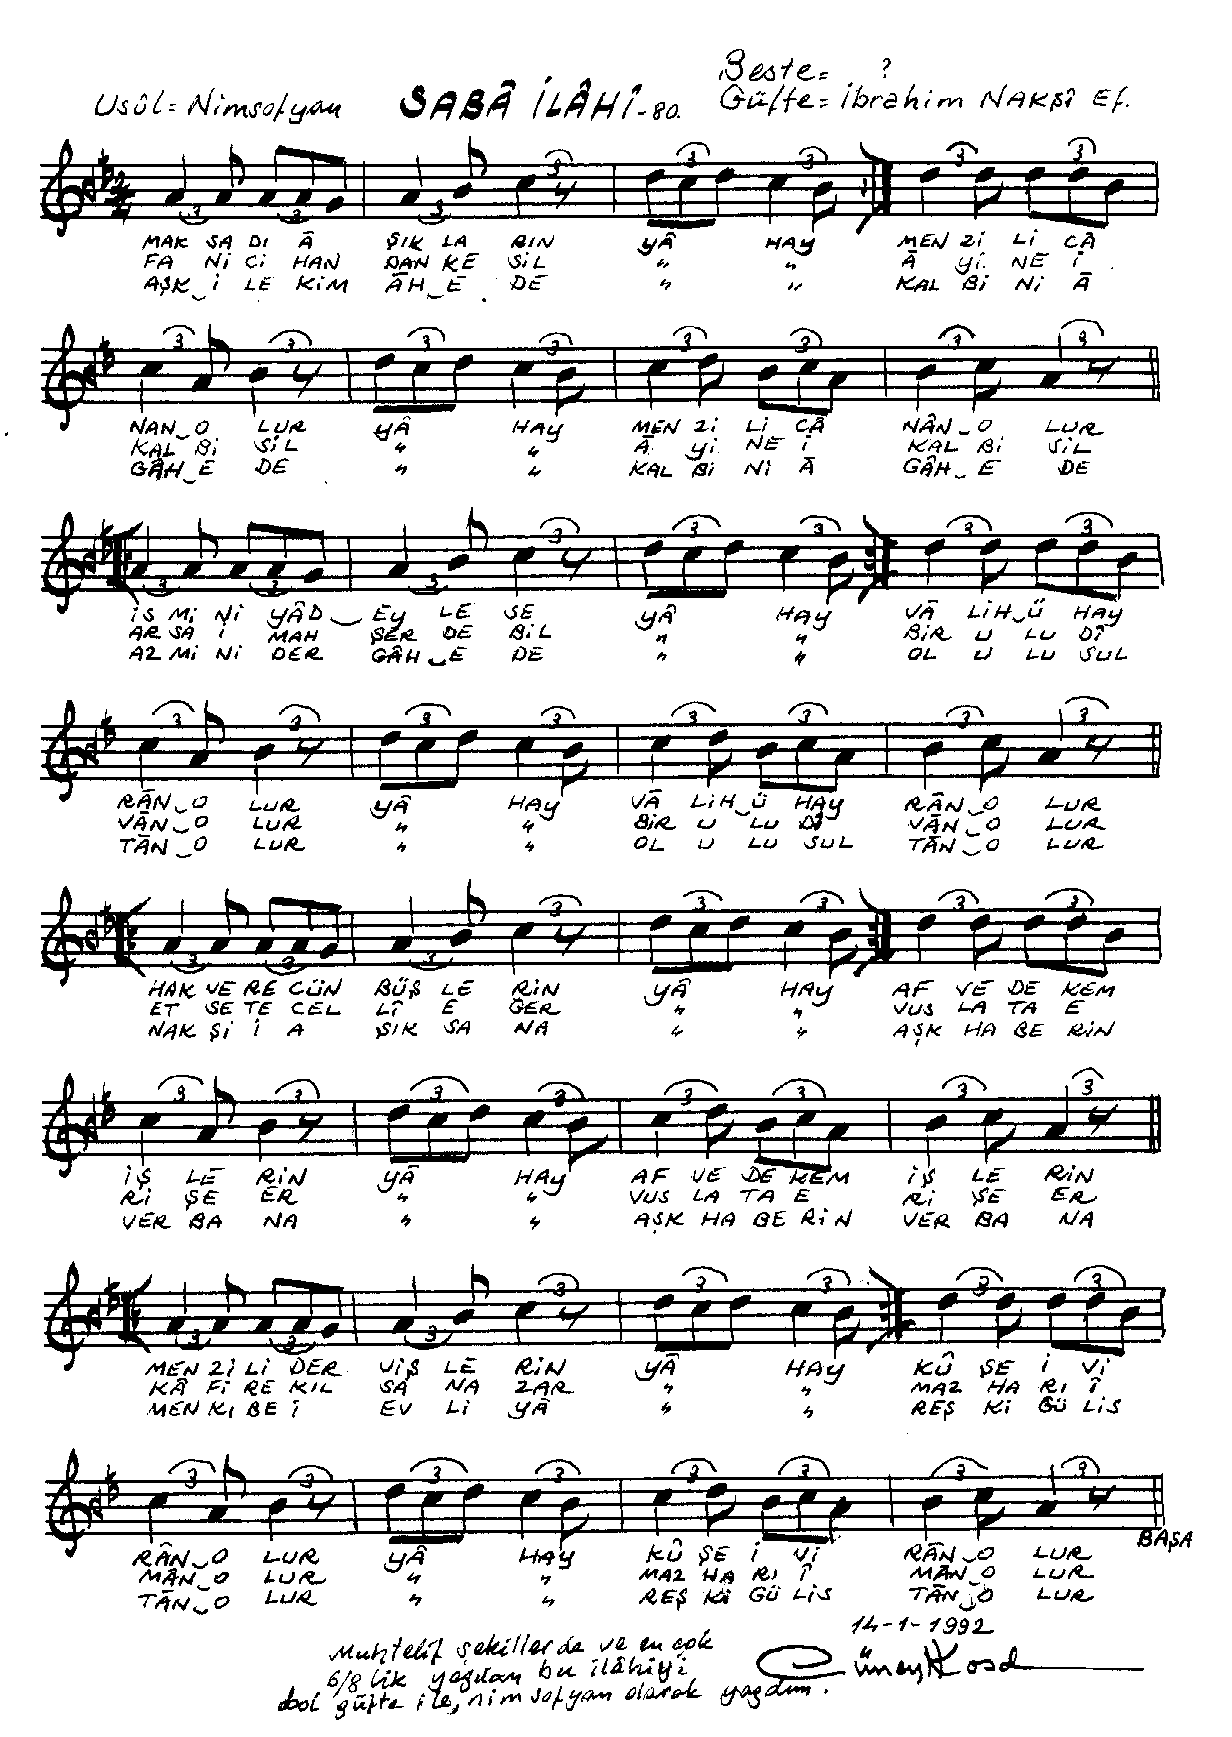 Beste= ?
Usûl= Nimsofyan SABÂ İLÂHÎ-80. Güfte= İbrahim NAKŞÎ Ef.
MAK SA DI Â ŞIK LA RIN YÂ HAY MEN Zİ Lİ CÂ
FA Nİ Cİ HAN DAN KE SİL " " Â Yİ NE İ
AŞK İ LE KİM ÂH E DE " " KAL Bİ Nİ Â
NAN O LUR YÂ HAY MEN Zİ Lİ CÂ NÂN O LUR
KAL Bİ SİL " " Â Yİ NE İ KAL Bİ SİL
GÂH E DE " " KAL Bİ Nİ Â GÂH E DE
İS Mİ Nİ YÂD EY LE SE YÂ HAY VÂ LİH Ü HAY
AR SA İ MAH ŞER DE BİL " " BİR U LU DÎ
AZ Mİ Nİ DER GÂH E DE " " OL U LU SUL
RÂN O LUR YÂ HAY VÂ LİH Ü HAY RÂN O LUR
VÂN O LUR " " BİR U LU DÎ VÂN O LUR
TÂN O LUR " " OL U LU SUL TÂN O LUR
HAK VE RE CÜN BÜŞ LE RİN YÂ HAY AF VE DE KEM
ET SE TE CEL LÎ E GER " " VUS LA TA E
NAK Şİ İ A ŞIK SA NA " " AŞK HA BE RİN
İŞ LE RİN YÂ HAY AF VE DE KEM İŞ LE RİN
Rİ ŞE ER " " VUS LA TA E Rİ ŞE ER
VER BA NA " " AŞK HA BE RİN VER BA NA
MEN Zİ Lİ DER VİŞ LE RİN YÂ HAY KÛ ŞE İ Vİ
KÂ Fİ RE KIL SA NA ZAR " " MAZ HA RI Î
MEN KI BE İ EV Lİ YÂ " " REŞ Kİ GÜ LİS
RÂN O LUR YÂ HAY KÛ ŞE İ Vİ RÂN O LUR
MÂN O LUR " " MAZ HA RI Î MÂN O LUR
TÂN O LUR " " REŞ Kİ GÜ LİS TÂN O LUR
BAŞA
14-1-1992
Muhtelif şekillerde ve en çok
6/8 lik yazılan bu ilâhiyi
bol güfte ile, nim sofyan olarak yazdım.